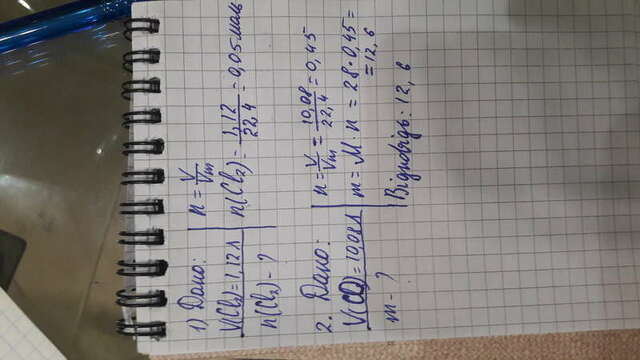 1) Дано:
V(Cl₂)=1,12л
n(Cl₂)-?
n = V/Vm
n(Cl₂)= 1,12/22,4 = 0,05 моль
2. Дано:
V(CO)=10,08л
m-?
n = V/Vm = 10,08/22,4 = 0,45
m = M·n = 28·0,45=
=12,6
Відповідь: 12,6